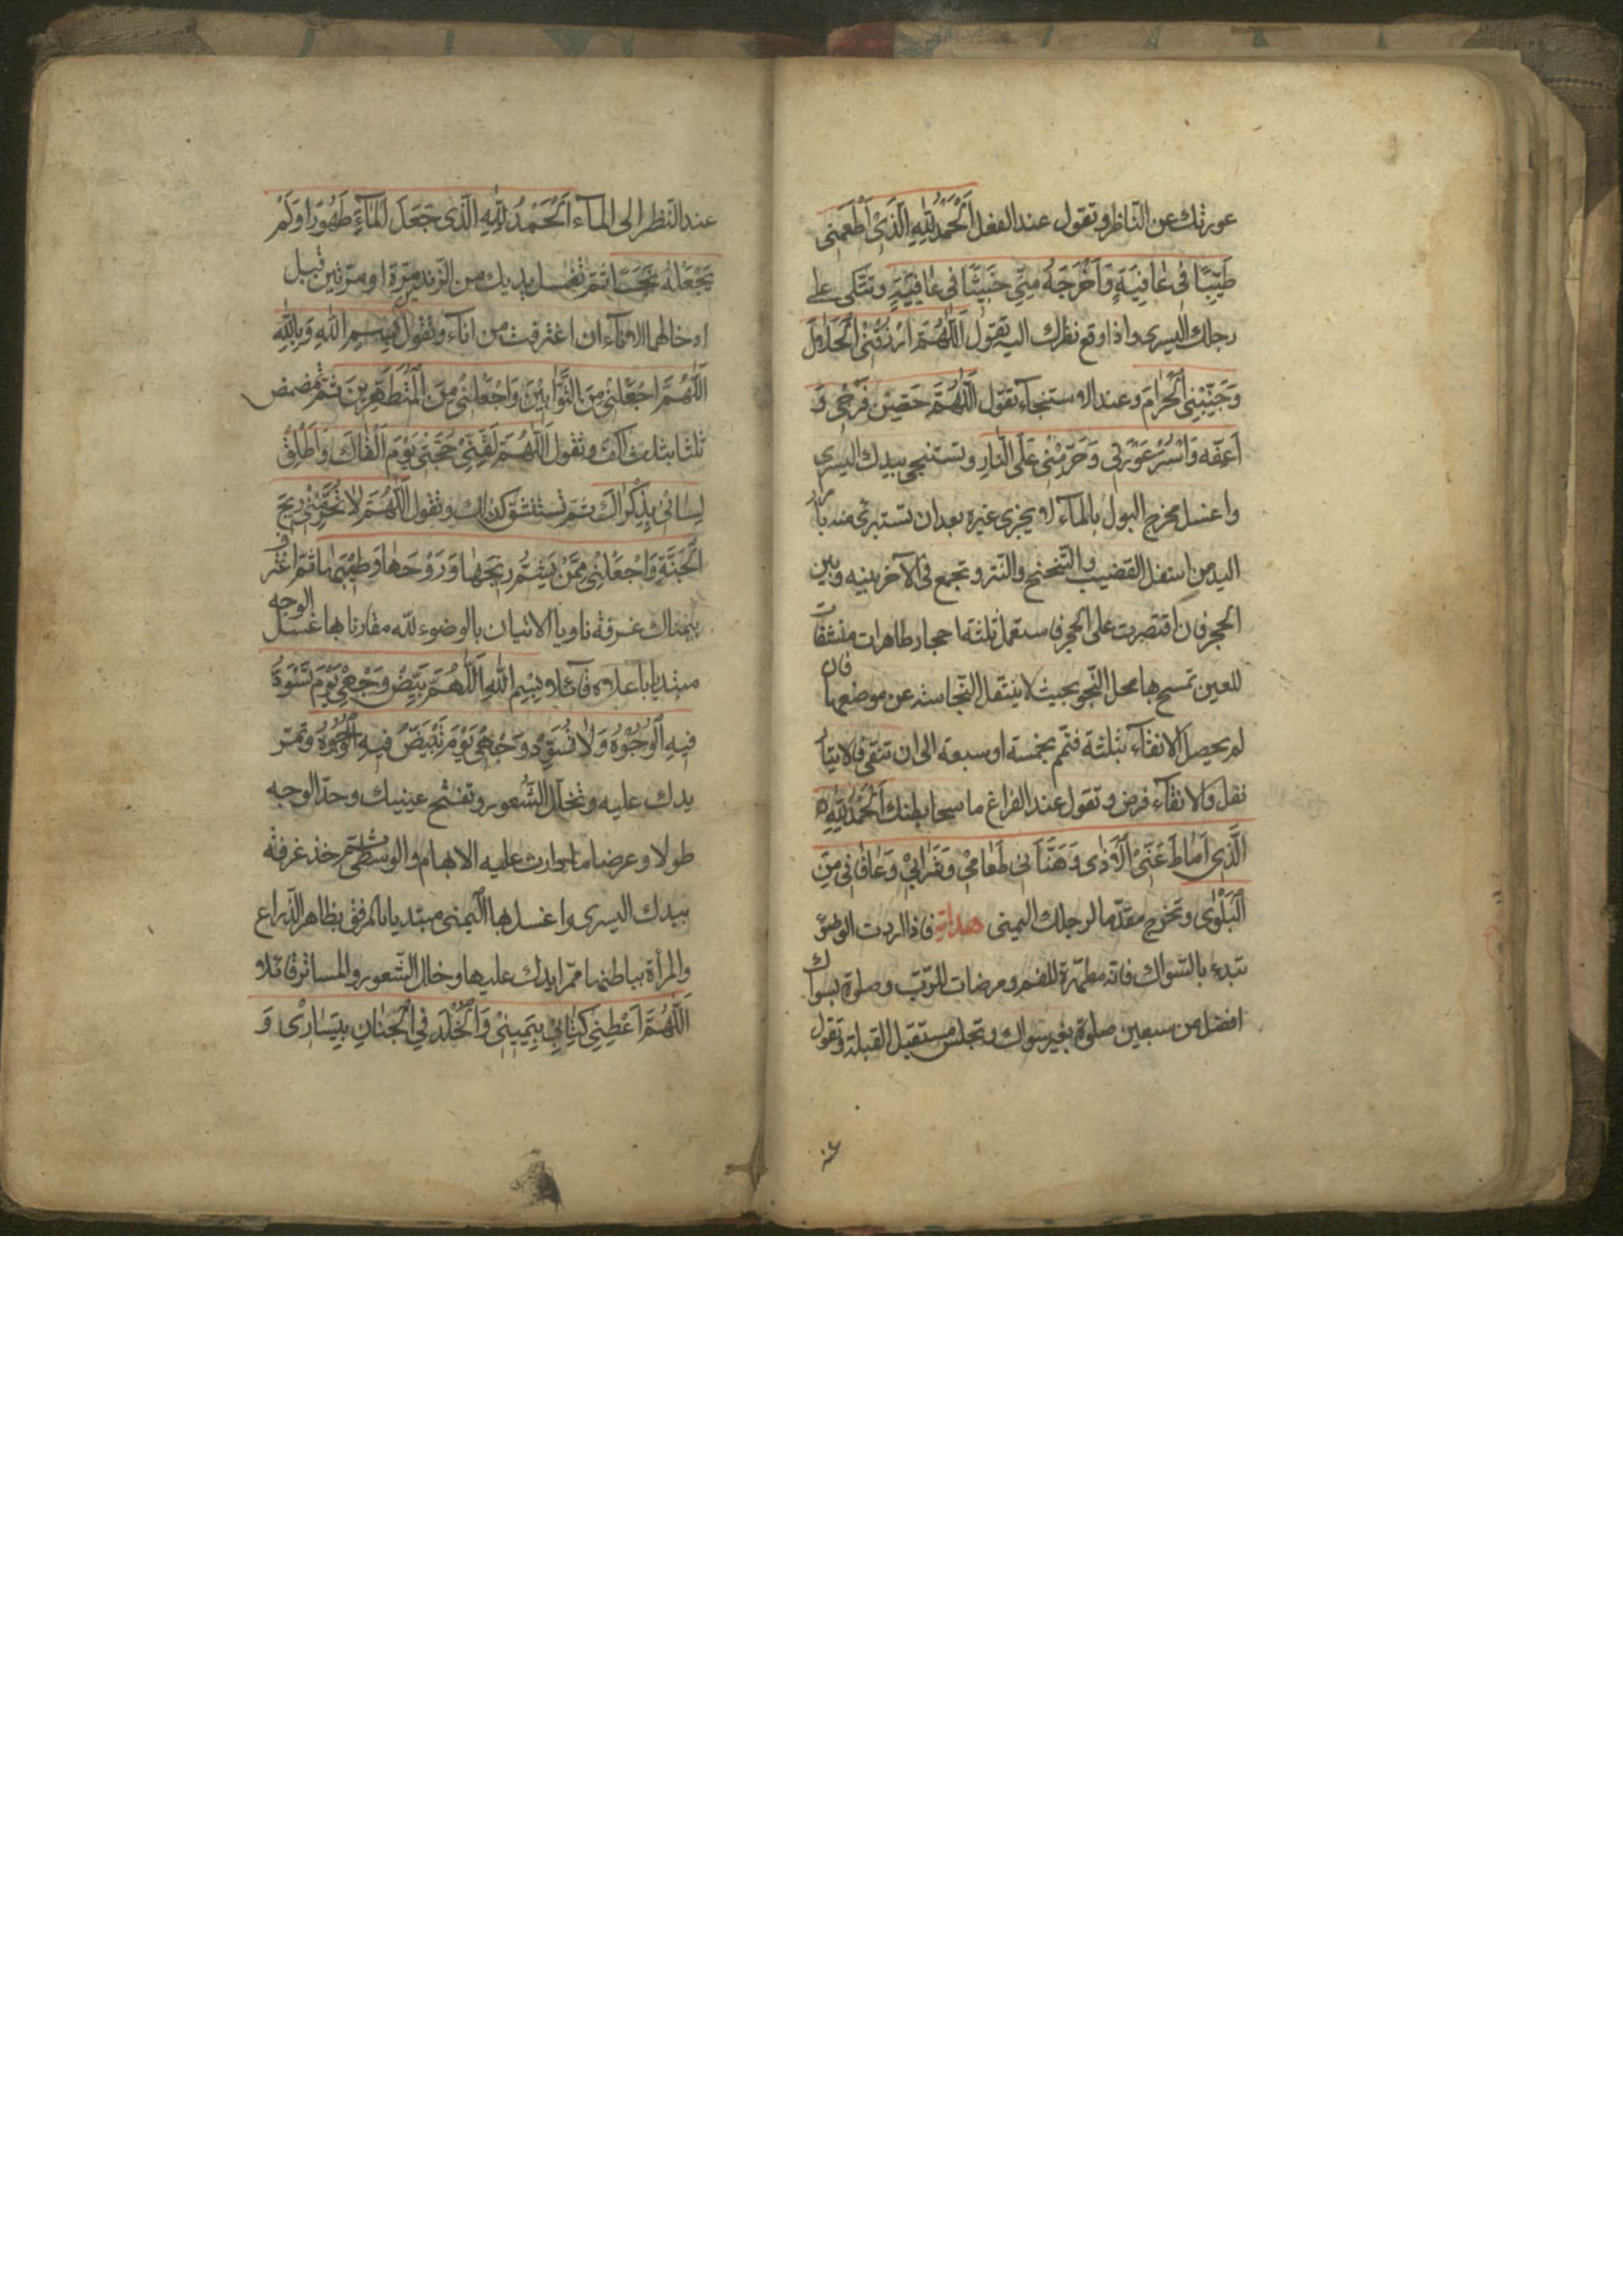 عورتك عن الناظر وتقول عند الفعل اَلْحَمْدُ لِلّٰهِ الَّذِیْ اَطْعَمَنِی
طَيِّبًا فِی عٰافِيَةٍ وَاَخْرَجَهُ مِنِّی خَبِيثًا فِی عٰافِيَةٍ وتتكی علی
رجلك اليسری واذا وقع نظرك اليه تقول اَللّٰهُمَّ ارْزُقْنِی الْحَلٰالَ
وَجَنِّبْنِی الْحَرٰامَ وعند الاستنجآء تقول اَللّٰهُمَّ حَصِّنْ فَرْجِی وَ
اَعِفَّهُ وَاسْتُرْ عَوْرَتِی وَحَرِّمْنِی عَلَی النّٰارِ وتستنجی بيدك اليسری
واغسل مخرج البول بالمآء لا يجزی غيره بعد ان تستبرئ منه بامرار
اليد من اسفل القضيب والتنحنح والنتر وتجمع فی الآخر بينه وبين
الحجر فان اقتصرت علی الحجر فاستعمل ثلثة احجار طاهرات منشفات
للعين تمسح بها محل النجو بحيث لا ينتقل النجاسة عن موضعها فان
لم يحصل الانقآء بثلثة فتمم بخمسة او سبعة الی ان تنقی فالايتار
نفل والانقآء فرض وتقول عند الفراغ ماسحا بطنك اَلْحَمْدُ لِلّٰهِ
الَّذِی اَمٰاطَ عَنِّیَ الْاَذٰی وَهَنَّاَنِی طَعٰامِی وَشَرٰابِی وَعٰافٰانِی مِنَ
الْبَلْوٰی وتخرج مقدّما لرجلك اليمنی هداية فاذا اردت الوضوء
تبدء بالسّواك فانه مطهرة للفم ومرضات للرّب وصلوة بسواك
افضل من سبعين صلوة بغير سواك وتجلس مستقبل القبلة وتقول
عند النّظر الی المآء اَلْحَمْدُ لِلّٰهِ الَّذِی جَعَلَ الْمٰاءَ طَهُورًا وَلَمْ
يَجْعَلْهُ نَجَسًا ثم تغسل يديك من الزّند مرّة او مرّتين قبل
ادخالهما الانآء ان اغترفت من انآء وتقول بِسْمِ اللّٰهِ وَبِاللّٰهِ
اَللّٰهُمَّ اجْعَلْنِی مِنَ التَّوّٰابِينَ وَاجْعَلْنِی مِنَ الْمُتَطَهِّرِينَ ثم تمضمض
ثلثا بثلث اكف وتقول اَللّٰهُمَّ لَقِّنِی حُجَّتِی يَوْمَ اَلْقٰاكَ وَاَطْلِقْ
لِسٰانِی بِذِكْرٰاكَ ثم تستنشق كذلك وتقول اَللّٰهُمَّ لاٰ تُحَرِّمْنِی رِيحَ
الْجَنَّةِ وَاجْعَلْنِی مِمَّنْ يَشَمُّ رِيحَهٰا وَرَوْحَهٰا وَطِيبَهٰا ثم اغترف
بيمناك غرفة ناويا الاتيان بالوضوء لله مقارنا بها غسل الوجه
مبتديا باعلاه قآئلا بِسْمِ اللّٰهِ اَللّٰهُمَّ بَيِّضْ وَجْهِی يَوْمَ تَسْوَدُّ
فِيهِ الْوُجُوهُ وَلاٰ تُسَوِّدْ وَجْهِی يَوْمَ تَبْيَضُّ فِيهِ الْوُجُوهُ وتمرّ
يدك عليه وتخلل الشعور وتفتح عينيك وحدّ الوجه
طولا وعرضا ما دارت عليه الابهام والوسطی ثم خذ غرفة
بيدك اليسری واغسل بها اليمنی مبتديا بالمرفق بظاهر الذراع
والمرأة بباطنها ممرا يدك عليها وخلل الشعور والمساتر قائلا
اَللّٰهُمَّ اَعْطِنِی كِتٰابِی بِيَمِينِی وَالْخُلْدَ فِی الْجِنٰانِ بِيَسٰارِی وَ